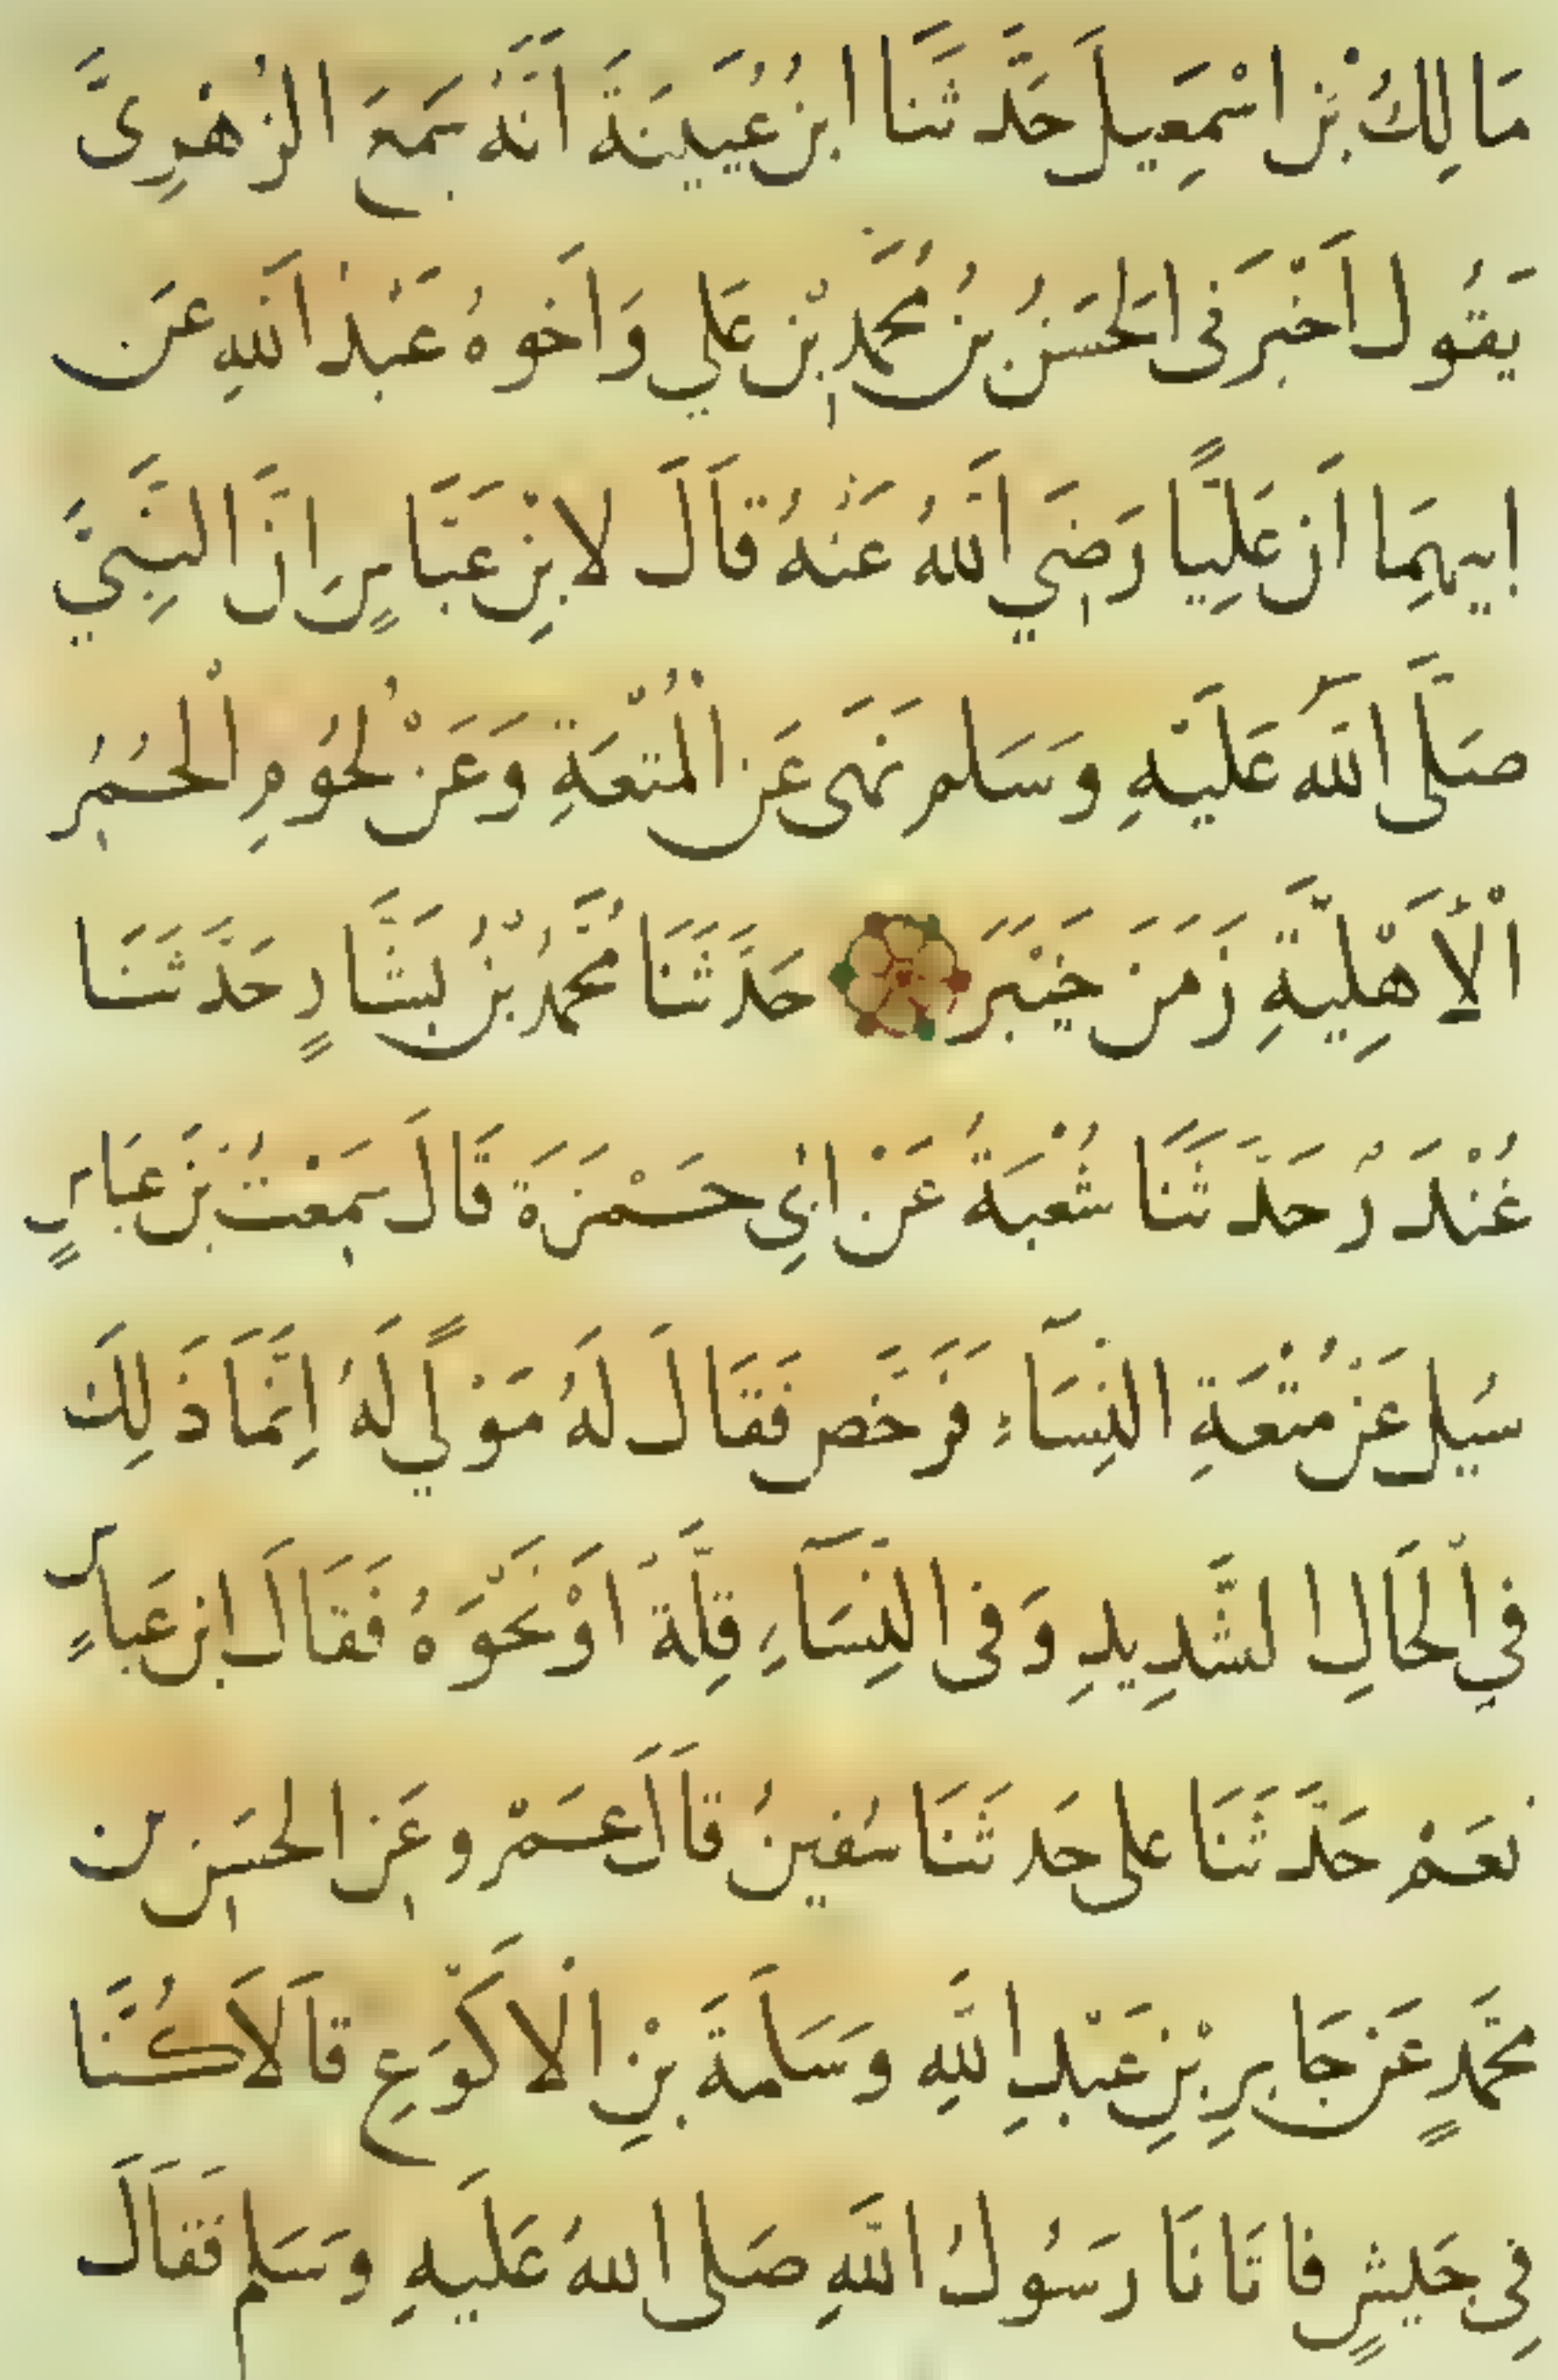 مَالِكُ بْنُ اسْمَعِيلَ حَدَّثَنَا ابنُ عُيَيْنَةَ اَنَّهُ سَمِعَ الزُهْرِىَّ
يَقُول اَخْبَرَنى الحَسَنُ بنُ مُحَمَّدِ بْنِ عَلي وَاَخوهُ عَبْدُ اَللهِ عَن
ابيهِمَا اَنَّ عَلِيًّا رَضِيَ اَللهُ عَنْهُ قاَلَ لابْنِ عَبَّاسٍ اِنَّ النَّبِيَّ
صَلَّى اللهُ عَلَيْهِ وَسَلم نَهَى عَنِ الْمُتْعَةِ وَعَنْ لُحُوْمِ الْحُمُرِ
الْأَهْلِيَّةِ زَمَنَ خَيْبَرَ حَدَّثَنَا مُحَمَّدُ بْنُ بَشَّارٍ حَدَّثَنَا
غُنْدَرٌ حَدَّثَنَا شُعْبَةُ عَنْ ابِي حَمْزَةَ قَالَ سَمِعْتُ بنَ عَبَاسٍ
سُيلَ عَنْ مُتْعَةِ النِّسَآءِ فَرَخَّصَ فَقَالَ لَهُ مَوْلًي لَهُ اِنَّمَا ذَلِكَ
فِي اْلحَالِ الشَّدِيدِ وَفى النِّسَآءِ قِلَّةً اَوْ نَحْوَهُ فَقَالَ ابن عَباسٍ
نَعَمْ حَدَّثَنَا على حَدثَنَا سُفينُ قاَلَ عَمْرو عَنِ الحَسَنِ بن
مُحَمَّدٍ عَنْ جَابِرِ بْنِ عَبْدِ اللَّهِ وَسَلَمَةَ بْنِ الْاَكْوَعِ قاَلاَ كُنَّا
فِى جَيشٍ فاتَانَا رَسُولُ اللَّهِ صَلى اللهُ عَلَيهِ وَسَلم فَقاَلَ